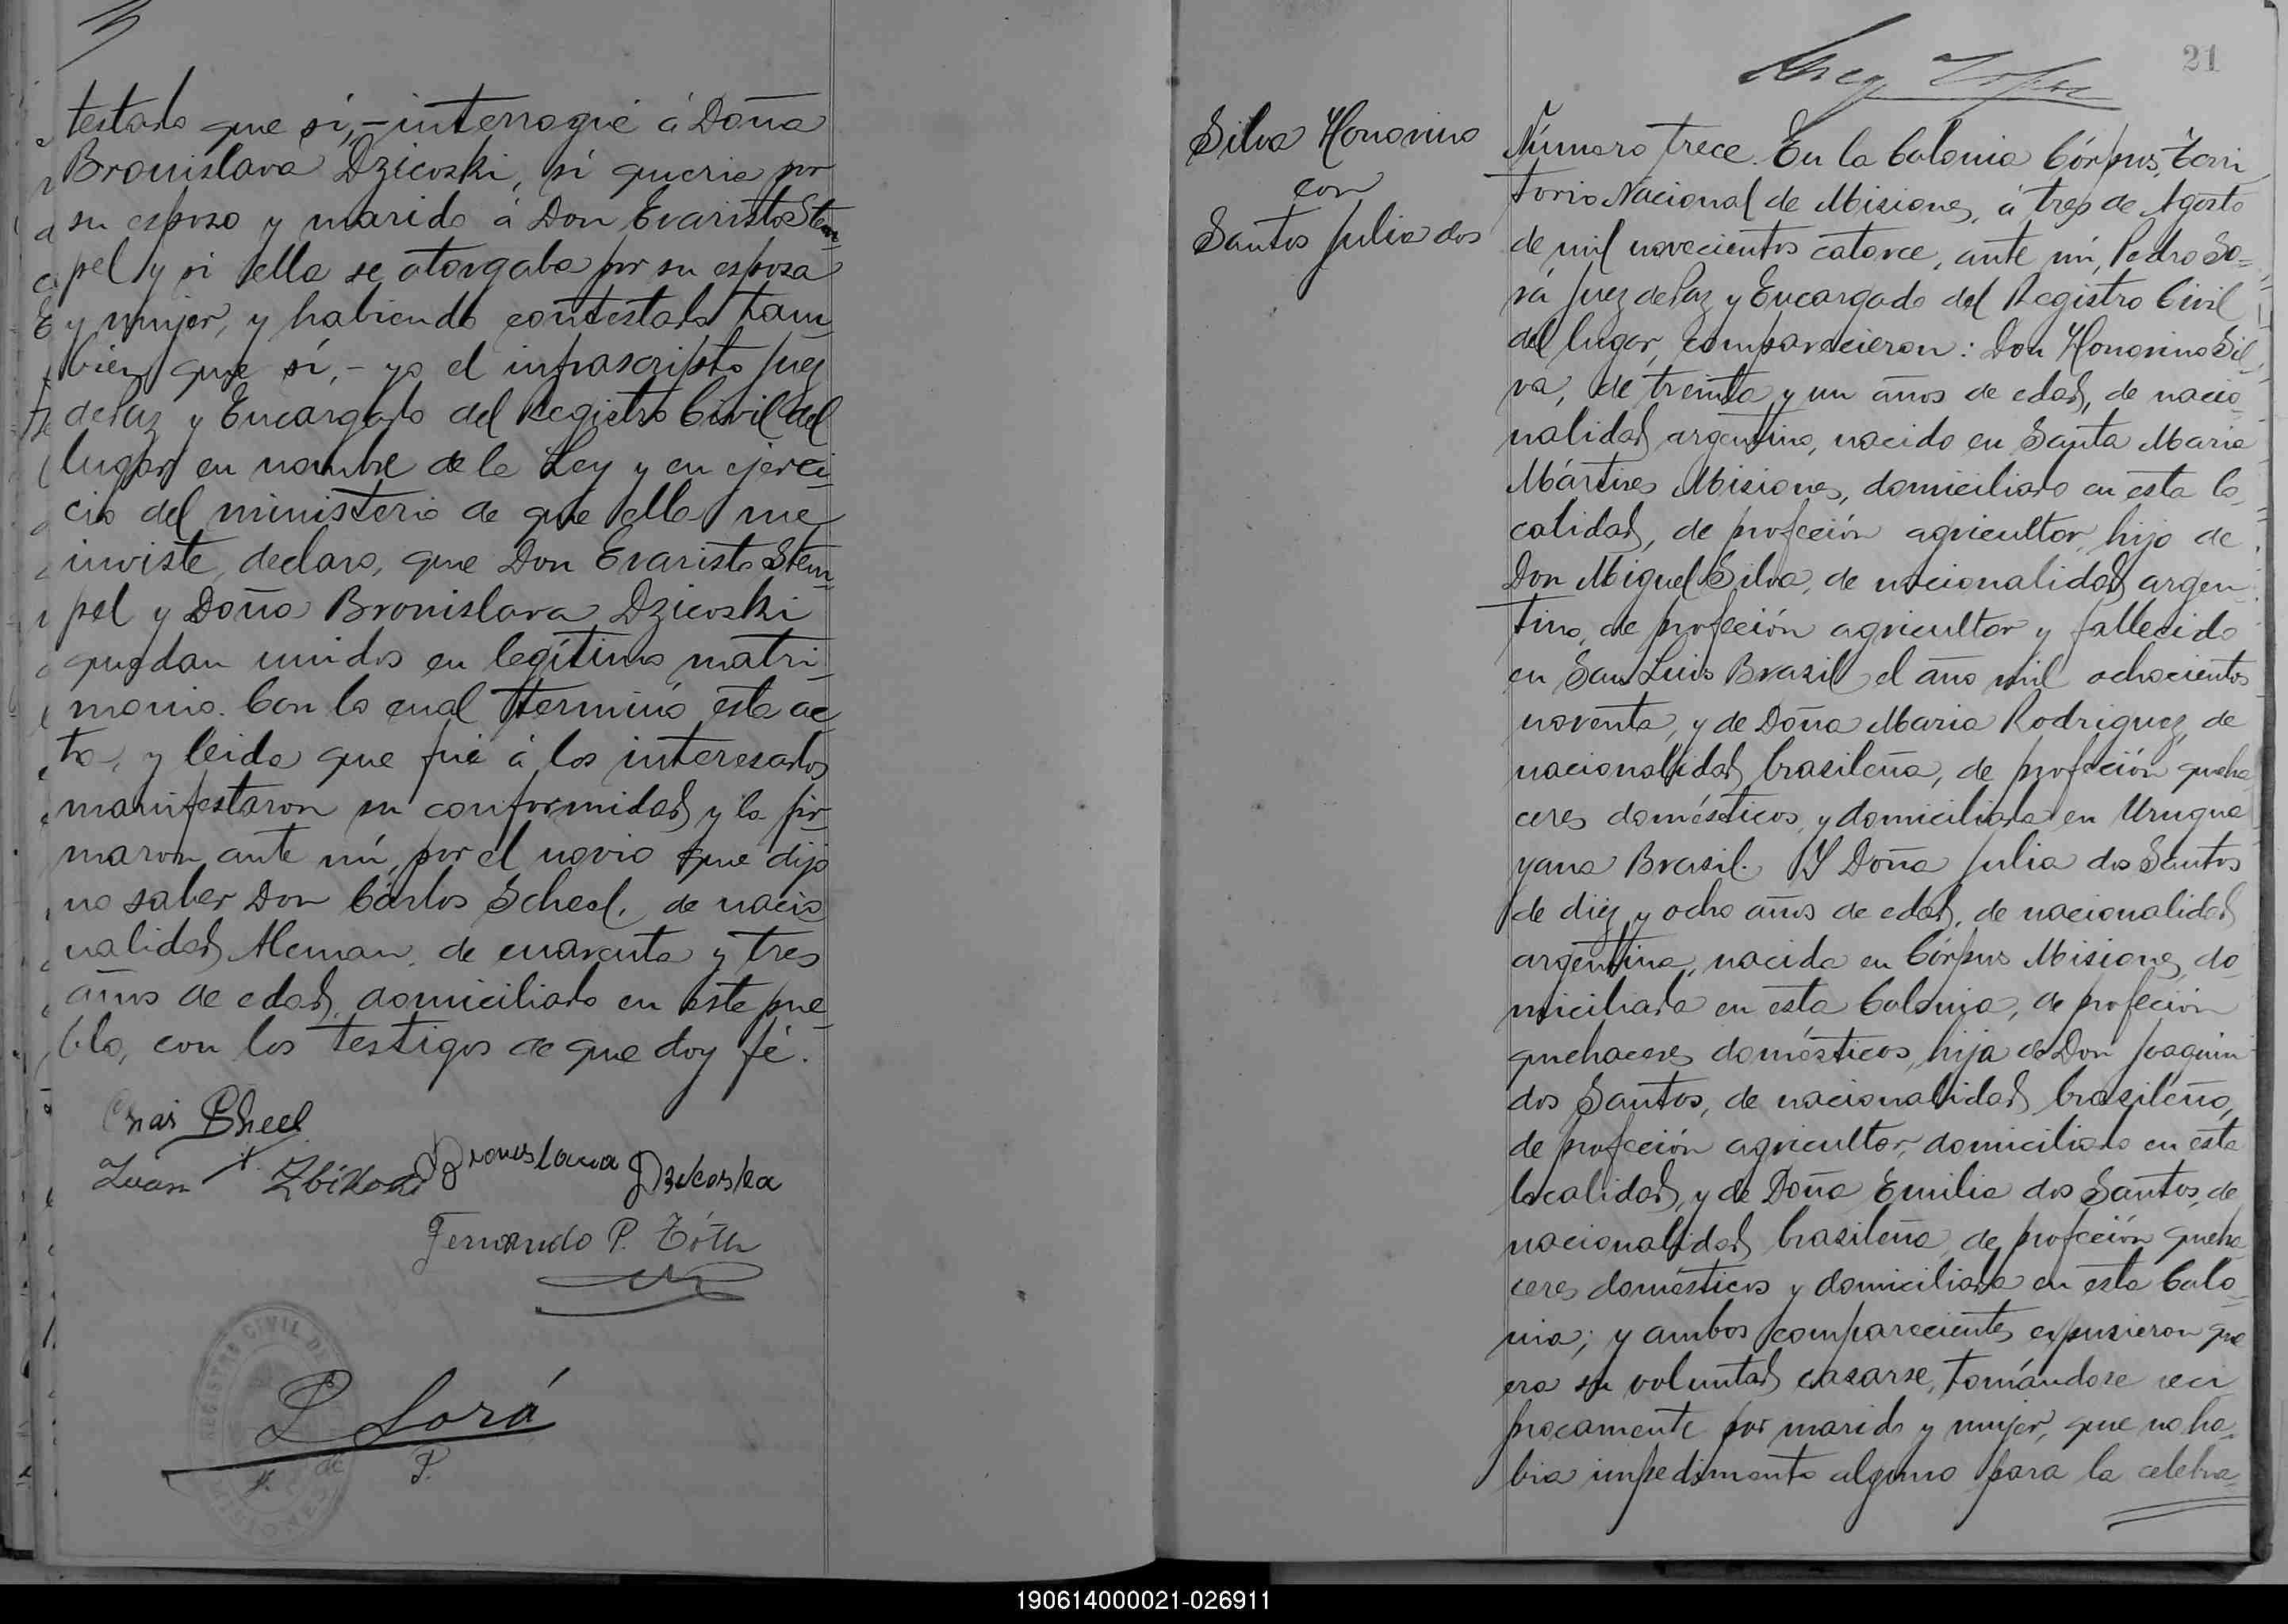 testado que sí,- interrogué á Doña
Bronislava Dzicoski, si queria por
su esposo y marido á Don Evaristo Stem
pel y si ella se otorgaba por su esposa
y mujer, y habiendo contestado tam
bien que sí,- yo el infrascripto Juez
de Paz y Encargado del Registro Civil del
lugar en nombre de la Ley y en ejerci
cio del ministerio de que ella me
inviste, declaro, que Don Evaristo Stem
pel y Doña Bronislava Dzicoski
quedan unidos en legítimo matri
monio. Con lo cual terminó esta ac
ta, y leida que fué á los interesados
manifestaron su conformidad y la fir
maron ante mí, por el novio que dijo
no saber Don Cárlos Scheel, de nacio
nalidad Aleman, de cuarenta y tres
años de edad, domiciliado en este pue
blo, con los testigos de que doy fé.
Juan Zbikoski
Bronislawa Dzikoska
Fernando P. Tóth
P Sorá
P.
REGISTRO CIVIL
21
Silva Honorino
con
Santos Julia dos
Número trece. En la Colonia Córpus, Terri
torio Nacional de Misiones, á tres de Agosto
de mil novecientos catorce, ante mí, Pedro So=
rá Juez de Paz y Encargado del Registro Civil
del lugar, comparecieron: Don Honorino Sil
va, de treinta y un años de edad, de nacio
nalidad argentino, nacido en Santa Maria
Mártires Misiones, domiciliado en esta lo
calidad, de profeción agricultor, hijo de
Don Miguel Silva, de nacionalidad argen
tino, de profeción agricultor y fallecido
en San Luis Brasil el año mil ochocientos
noventa, y de Doña Maria Rodriguez, de
nacionalidad brasileña, de profeción queha
ceres domésticos y domiciliada en Urugua
yana Brasil. Y Doña Julia dos Santos
de diez y ocho años de edad, de nacionalidad
argentina, nacida en Córpus Misiones, do
miciliada en esta Colonia, de profeción
quehaceres domésticos, hija de Don Joaquin
dos Santos, de nacionalidad brasileño,
de profeción agricultor, domiciliado en esta
localidad, y de Doña Emilia dos Santos, de
nacionalidad brasileña, de profeción queha
ceres domésticos y domiciliada en esta Colo
nia; y ambos comparecientes expusieron que
era su voluntad casarse, tomándose reci
procamente por marido y mujer, que no ha=
bia impedimento alguno para la celebra=
190614000021-026911